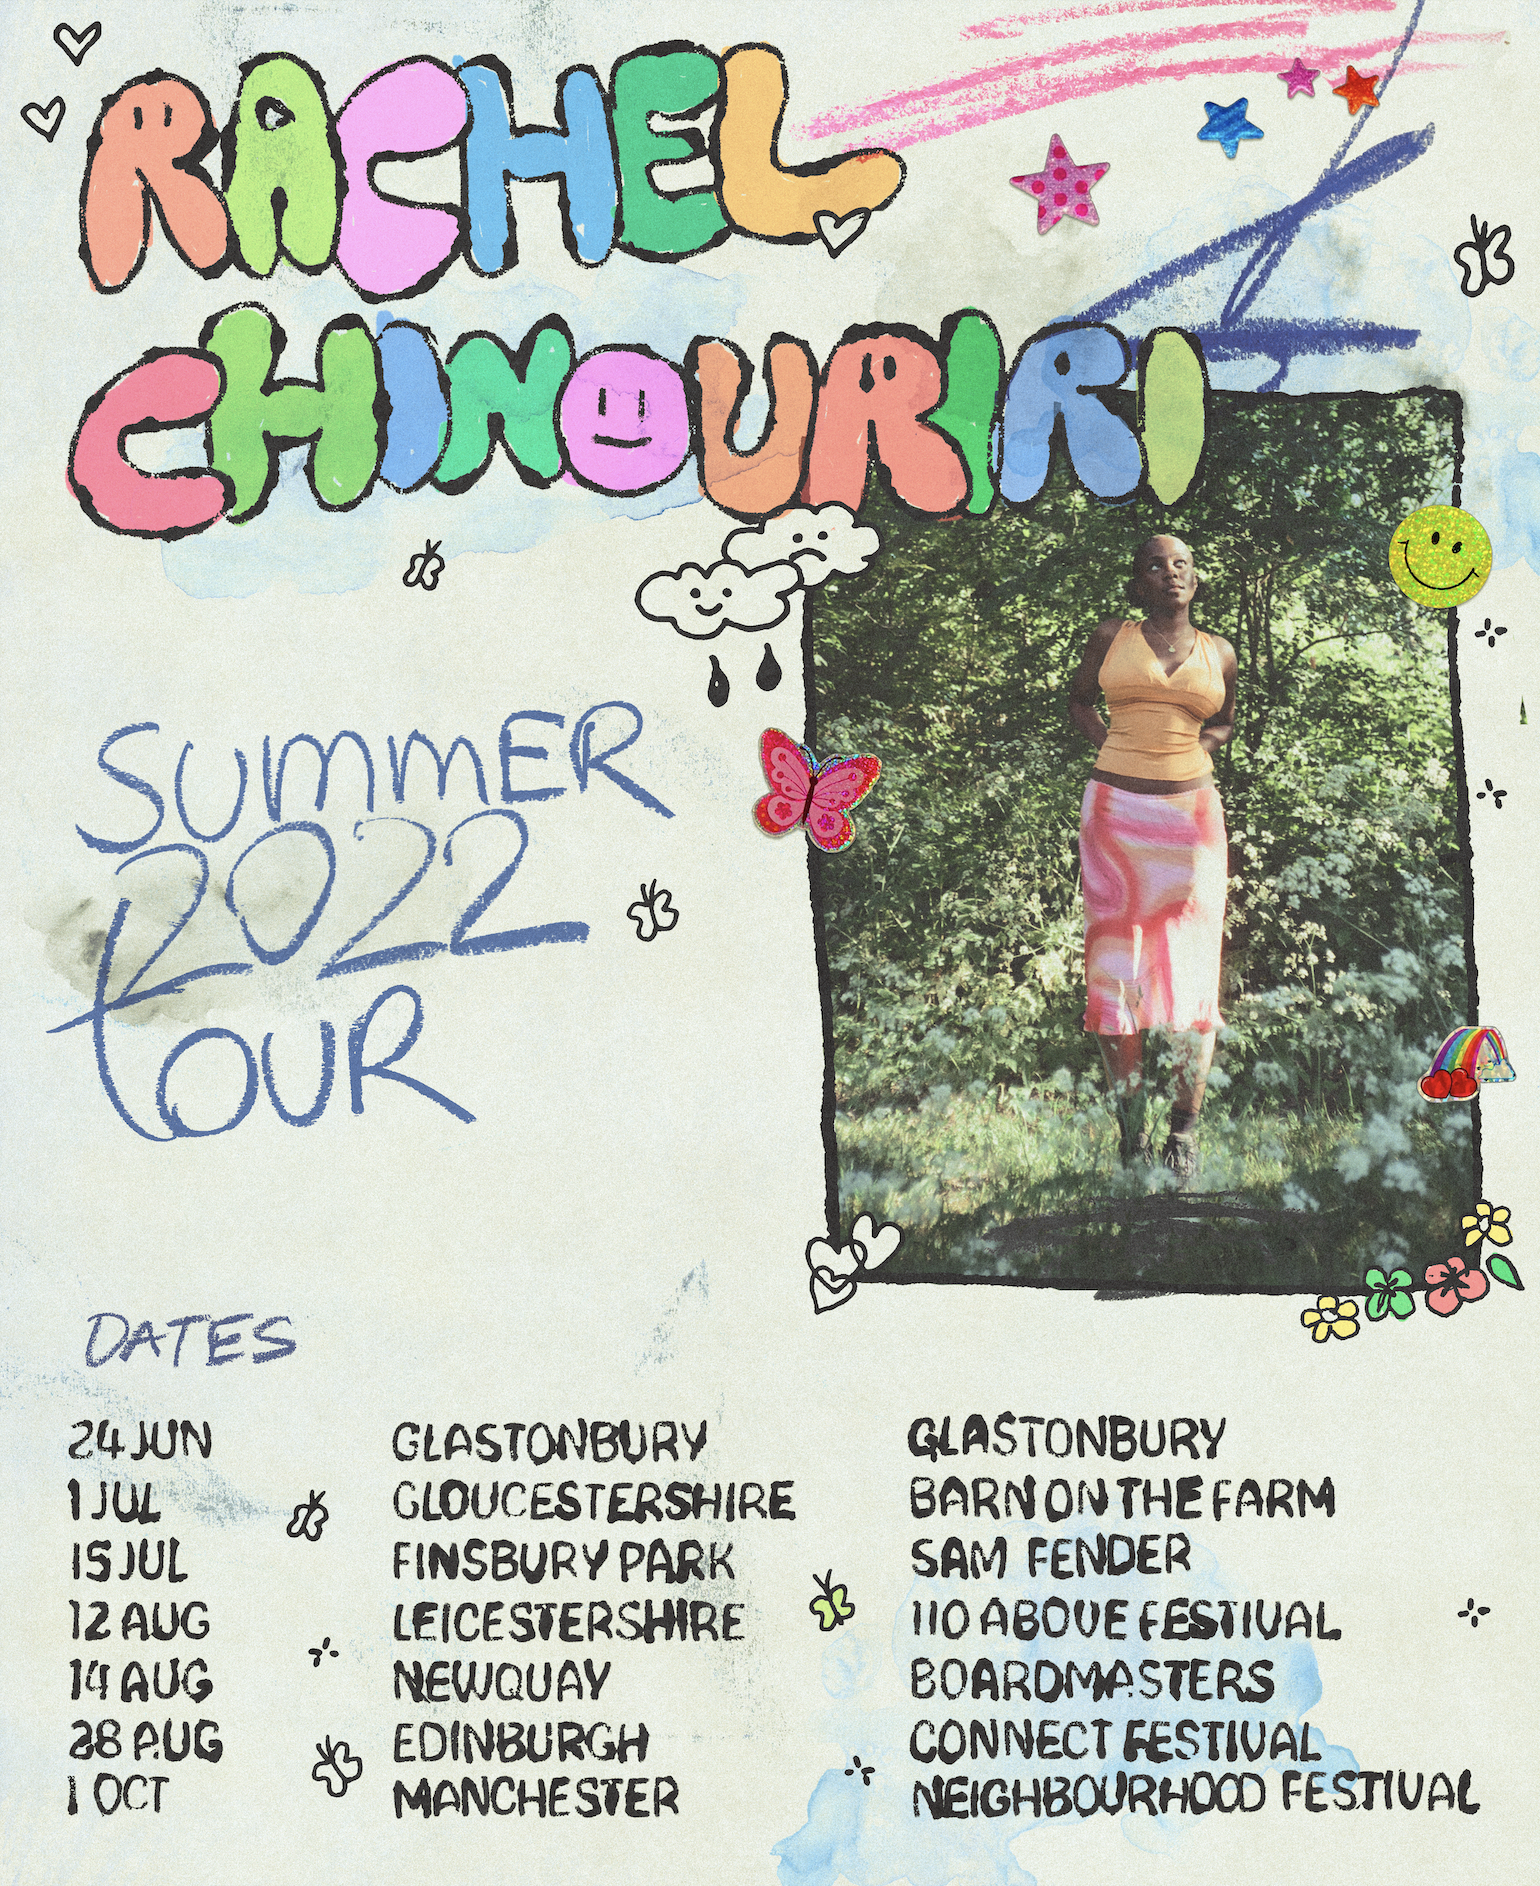 RACHEL
CHINOURIRI
SUMMER
2022
tOUR
DATES
24 JUN GLASTONBURY GLASTONBURY
1 JUL GLOUCESTERSHIRE BARN ON THE FARM
15 JUL FINSBURY PARK SAM FENDER
12 AUG LEICESTERSHIRE 110 ABOVE FESTIVAL
14 AUG NEWQUAY BOARDMASTERS
28 AUG EDINBURGH CONNECT FESTIVAL
1 OCT MANCHESTER NEIGHBOURHOOD FESTIVAL